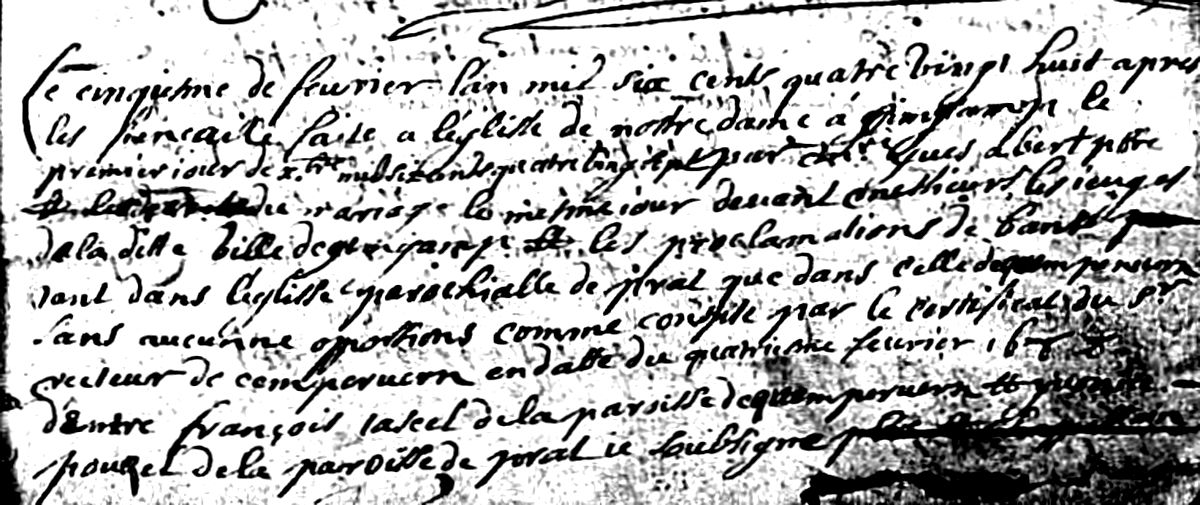 Ce cinquiesme de fevrier l'an mil six cents quatre vingt huit apres
les fiençaille faite a léglisse de nostre dame á guingamp le
premier jour de x.bre mil six cents quatre vingt sept par yves abert ptre
du mariage le mesme jour devant messieurs les juges
de la ditte ville de guingamp les proclamations de bans
tant dans léglisse parochialle de prat que dans celle de quemperven
sans aucunne opositions comme conste par le certificat du Sr
recteur de cemperven en datte du quatriesme fevrier
dentre françois lascel de la paroisse de quemperven et
pouzel de la paroisse de prat je soubsigne